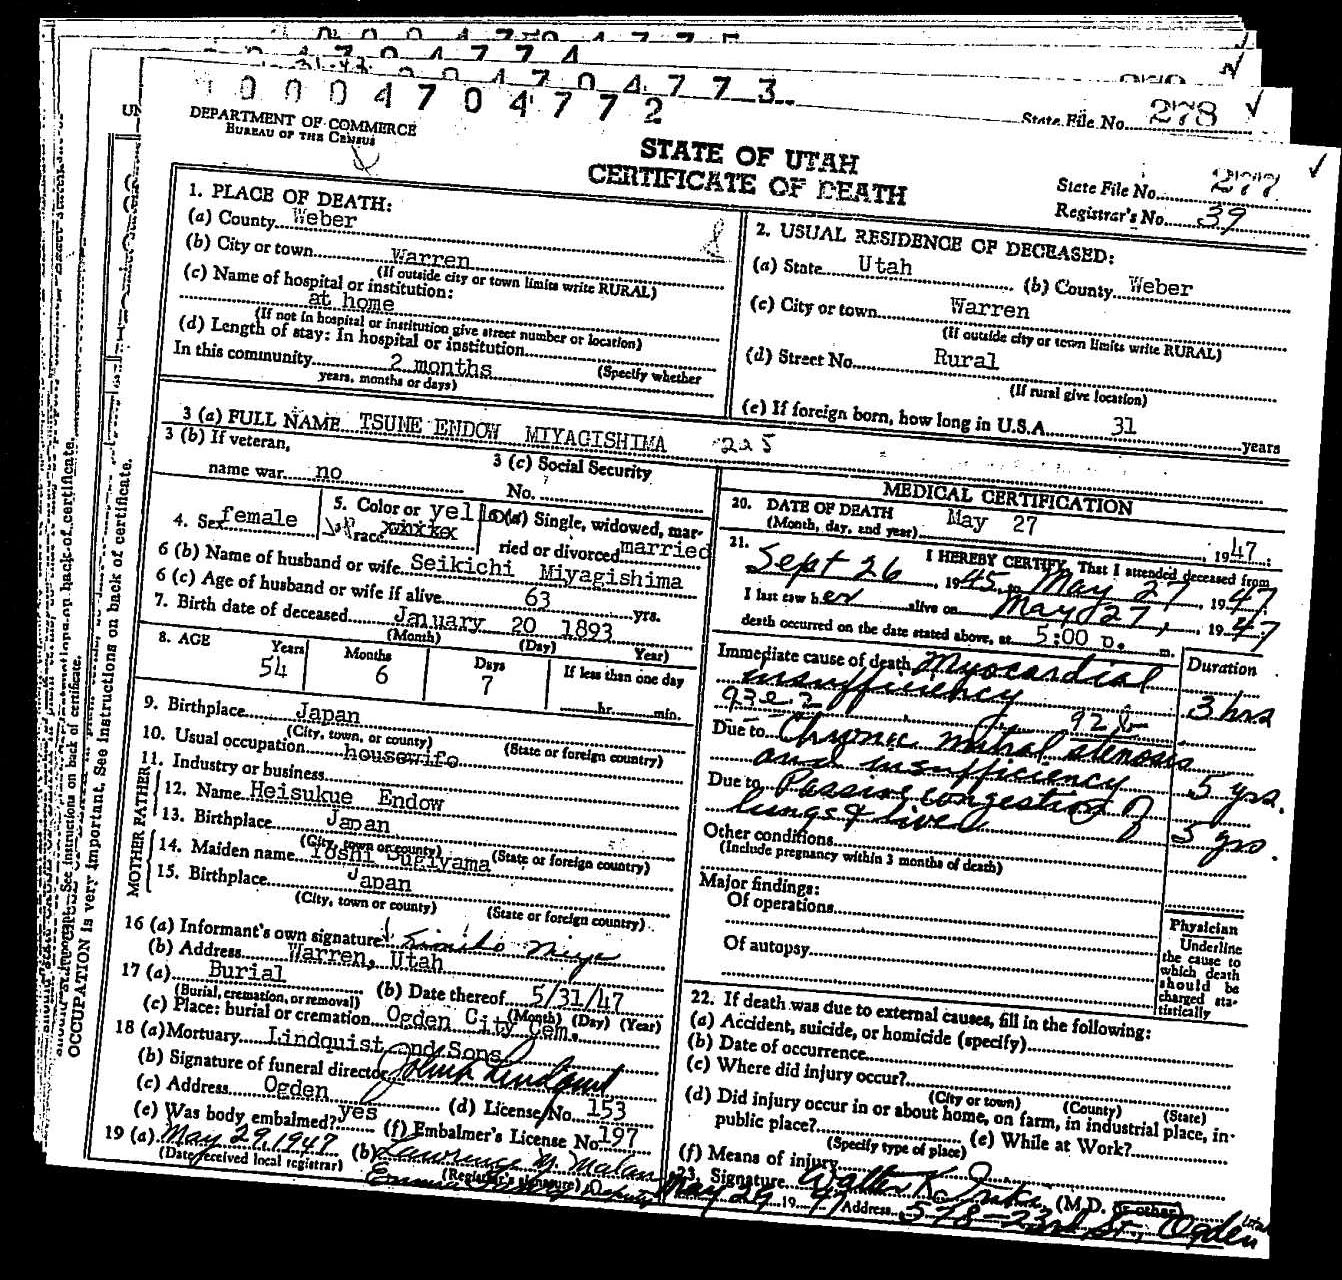 0 0 0 4 7 0 4 7 7 3
0 0 0 4 7 0 4 7 7 2
State File No. 278
DEPARTMENT OF COMMERCE
BUREAU OF THE CENSUS
STATE OF UTAH
CERTIFICATE OF DEATH
State File No. 277
Registrar's No. 39
1. PLACE OF DEATH:
(a) County Weber
(b) City or town Warren
(If outside city or town limits write RURAL)
(c) Name of hospital or institution:
at home
(If not in hospital or institution give street number or location)
(d) Length of stay: In hospital or institution
(Specify whether
In this community 2 months
years, months or days)
2. USUAL RESIDENCE OF DECEASED:
(a) State Utah (b) County Weber
(c) City or town Warren
(If outside city or town limits write RURAL)
(d) Street No. Rural
(If rural give location)
(e) If foreign born, how long in U.S.A. 31 years
3 (a) FULL NAME TSUNE ENDOW MIYAGISHIMA 225
3 (b) If veteran,
name war no
3 (c) Social Security
No.
4. Sex female
5. Color or yellow
race
6 (a) Single, widowed, mar-
ried or divorced married
6 (b) Name of husband or wife Seikichi Miyagishima
6 (c) Age of husband or wife if alive 63 yrs.
7. Birth date of deceased January 20 1893
(Month) (Day) Year)
8. AGE Years Months Days If less than one day
54 6 7 hr. min.
9. Birthplace Japan
(City, town, or county) (State or foreign country)
10. Usual occupation housewife
11. Industry or business
FATHER
12. Name Heisukue Endow
13. Birthplace Japan
(City, town or county) (State or foreign country)
MOTHER
14. Maiden name Yoshi Sugiyama
15. Birthplace Japan
(City, town or county) (State or foreign country)
16 (a) Informant's own signature
(b) Address Warren, Utah
17 (a) Burial (b) Date thereof 5/31/47
(Burial, cremation, or removal) (Month) (Day) (Year)
(c) Place: burial or cremation Ogden City Cem.
18 (a) Mortuary Lindquist and Sons
(b) Signature of funeral director
(c) Address Ogden (d) License No. 153
(e) Was body embalmed? yes (f) Embalmer's License No. 197
19 (a) May 29, 1947 (b) Lawrence M. Malan
(Date received local registrar) (Registrar's signature)
Deputy
MEDICAL CERTIFICATION
20. DATE OF DEATH May 27 1947:
(Month, day, and year)
21. I HEREBY CERTIFY, That I attended deceased from
Sept 26, 1945, to May 27, 1947.
I last saw her alive on May 27, 1947
death occurred on the date stated above, at 5:00 p. m.
Duration
Immediate cause of death Myocardial
insufficiency 3 hrs
92b
Due to Chronic mitral stenosis
and insufficiency 5 yrs.
Due to Passive congestion of
lungs & liver 5 yrs.
Other conditions
(Include pregnancy within 3 months of death)
Major findings:
Of operations
Of autopsy
Physician
Underline
the cause to
which death
should be
charged sta-
tistically
22. If death was due to external causes, fill in the following:
(a) Accident, suicide, or homicide (specify)
(b) Date of occurrence
(c) Where did injury occur?
(City or town) (County) (State)
(d) Did injury occur in or about home, on farm, in industrial place, in-
public place? (e) While at Work?
(Specify type of place)
(f) Means of injury
23. Signature Walter K. (M.D. or other)
May 29 1947 Address 578-23rd St., Ogden Utah
OCCUPATION is very important. See instructions on back of certificate.